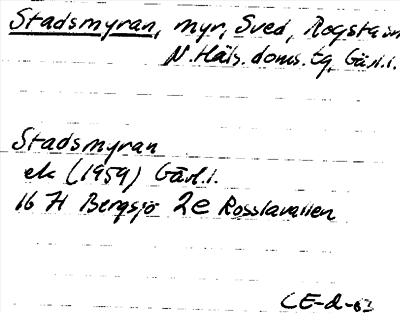 Stadsmyran, myr, Sved, Rogsta sn
N. Häls. doms. tg, Gävl.l.
Stadsmyran
ek (1959) Gävl.l.
16 H Bergsjö 2e Rosslavallen
CE-d-63